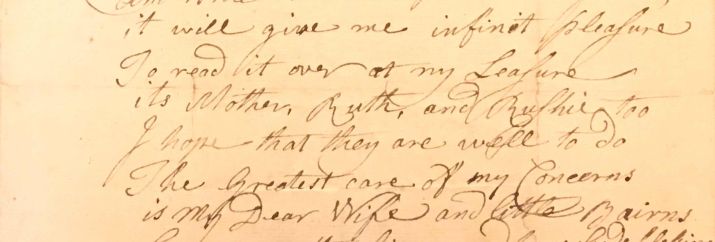 it will give me infinit Pleasure
To read it over at my Leasure
its Mother, Ruth, and Rushie too
I hope that they are well to do
The Greatest care of my Concerns
is my Dear Wife and little Bairns